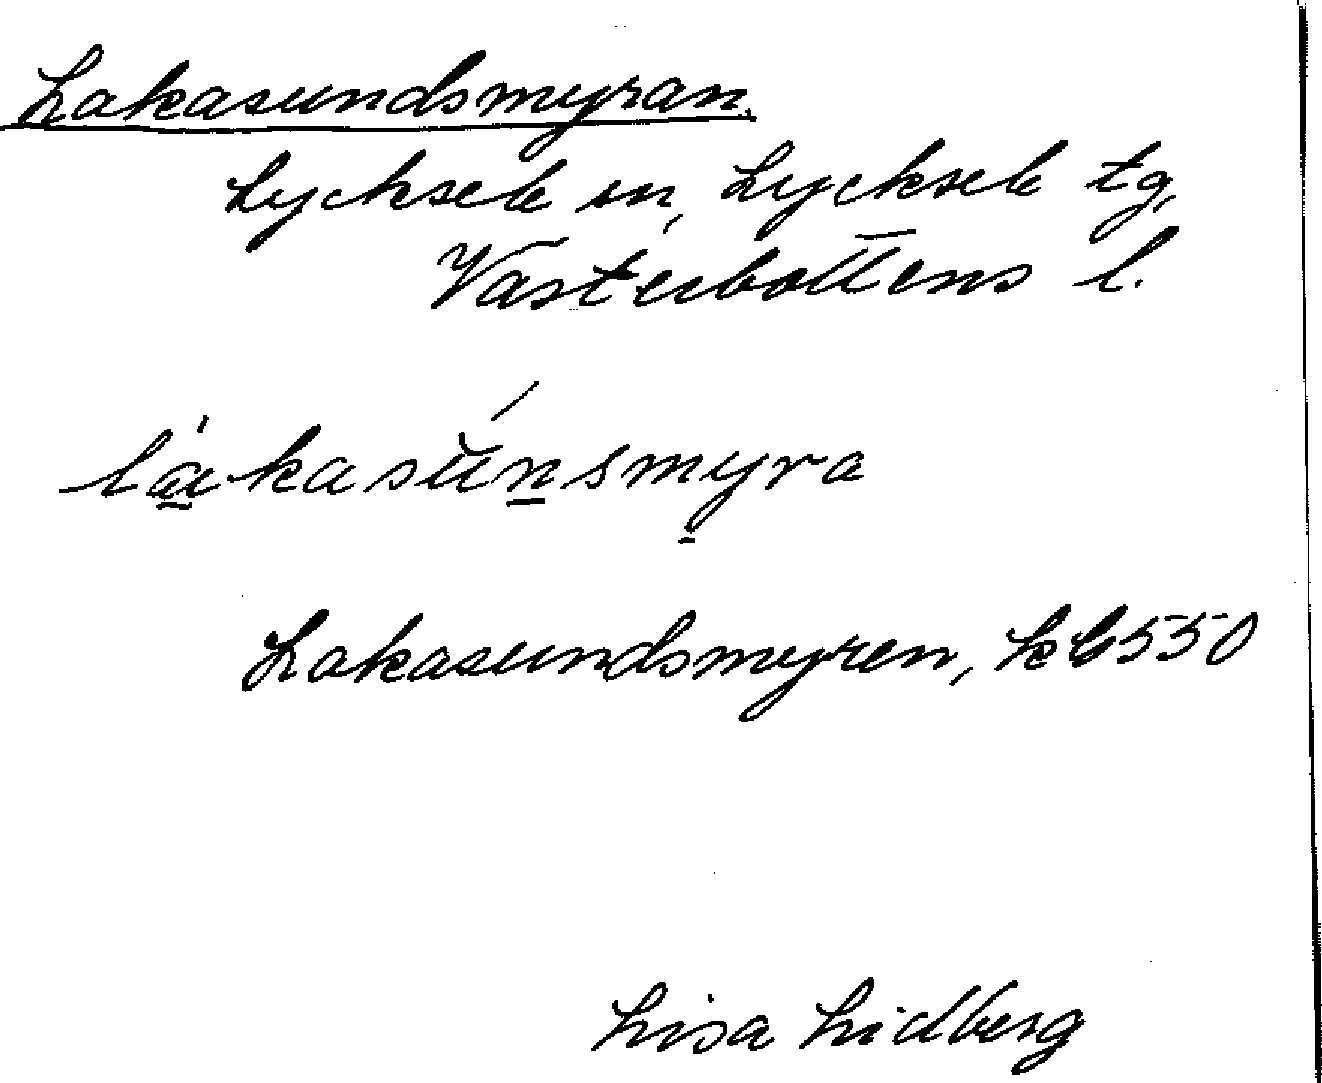 Lakasundsmyran.
Lycksele sn, Lycksele tg,
Västerbottens l.
lakasunsmyra
Lakasundsmyren, kb 550
Lisa Lidberg